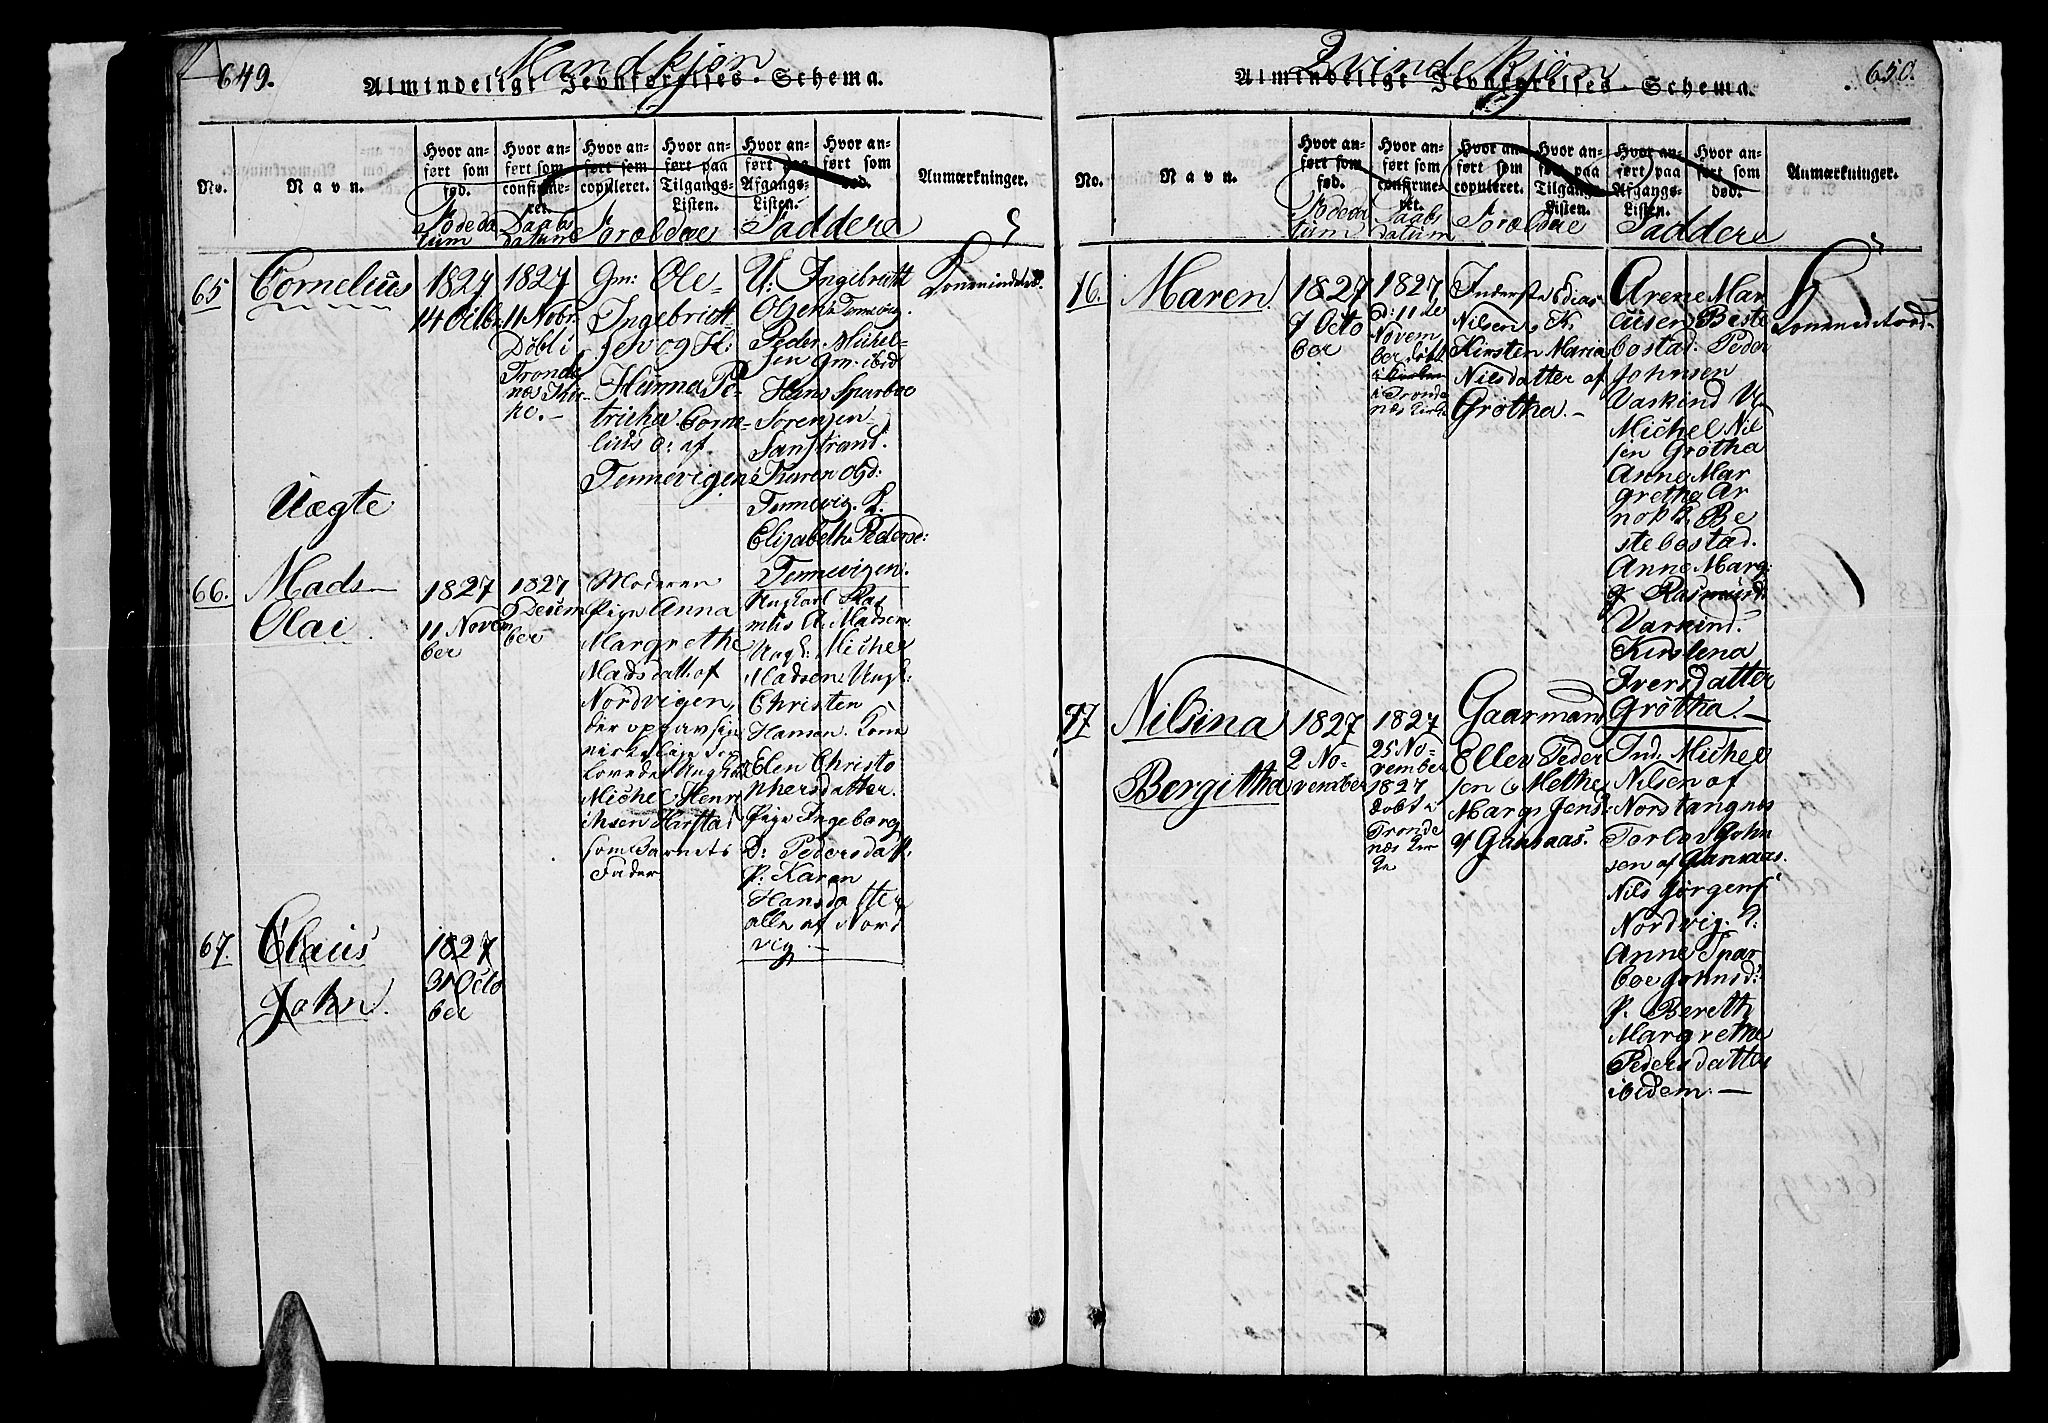 649.
Mandkjøn
Almindeligt Jevnførelses-Schema.
No.
Navn.
Hvor an-
ført som
fød.
Hvor an-
ført som
confirme-
ret.
Hvor an-
ført som
copuleret.
Hvor an-
ført paa
Tilgangs-
Listen.
Hvor an-
ført paa
Afgangs-
Listen.
Hvor an-
ført som
død.
Anmærkninger.
Fødeda
tum
Daabs
datum
Foreldre
Faddere
65
Cornelius
1827
14 Octbr
1827
11 Nobr
Døbt i
Tronde
næs Kir
ke.-
Gm: Ole
Ingebrict
sen og H:
Hanna Pe-
tricha Corne-
lius d: af
Tennevigen
U: Ingebricht
Olsen Tennevig.
Peder Michel-
sen Gm: ibid
Hans Sparboe
Sørensen
Sanstrand.
Karen Olsd:
Tennevig. K.
Elizabeth Pederse:
Tennevigen.
Uægte
66.
Mads
Olai
1827
11 Novem
ber
1827
Decem
ber
Moderen
Pige Anna
Margrethe
Madsdatt. af
Nordvigen,
Michel Henri
chsen Harstad
som Barnets
Fader
Ungkarl Ras
mus A: Madsen
Ungk: Michel
Madsen Ungk:
Christen
Hansen. Kone
Elen Christo
phersdatter.
Pige Ingeborg
D: Pedersdatt:
P: Karen
Hansdatter
alle af Nord
vig.-
67.
Claus
John.
1827
31 Octo
ber
650.
Qvindekjøn
Almindeligt Jevnførelses-Schema.
No.
Navn.
Hvor an-
ført som
fød.
Hvor an-
ført som
confirme-
ret.
Hvor an-
ført som
copuleret.
Hvor an-
ført paa
Tilgangs-
Listen.
Hvor an-
ført paa
Afgangs-
Listen.
Hvor an-
ført som
død.
Anmærkninger.
Fødeda
tum
Daabs
datum
Foreldre
Faddere
76.
Maren.
1827
7 Octo
ber
1827
D: 11 de
Novem
ber døbt
i Tronde
næs Kirke
Inderste Edias
Nilsen, K.
Kirsten Maria
Nilsdatter af
Grøtha.-
Arene Mar
cusen Beste
bostad. Peder
Johnsen
Vaskind U:
Michel Nil
sen Grøtha
Anne Mar
grethe Ar
Be
stebostad.
Anne Marg:
Rasmusd:
Varkind.
Kirstena
Iversdatter
Grøtha.-
77
Nilsina
Bergitha
1827
2 No-
vember
1827
25 No-
vember
1827
døbt i
Tronde
næs Kir
ke
Gaarmand
Eller Peder
sen & Methe
Marg: Jensd:
af Gansaas.
Ind. Michel
Nilsen af
Nordtangnes
Torlov John
sen af Gansaas.
Nils Jørgens:
Nordvig. K:
Anne Spar
boe Johnsd:
P. Bereth
Margrethe
Pedersdatter
ibidem.-